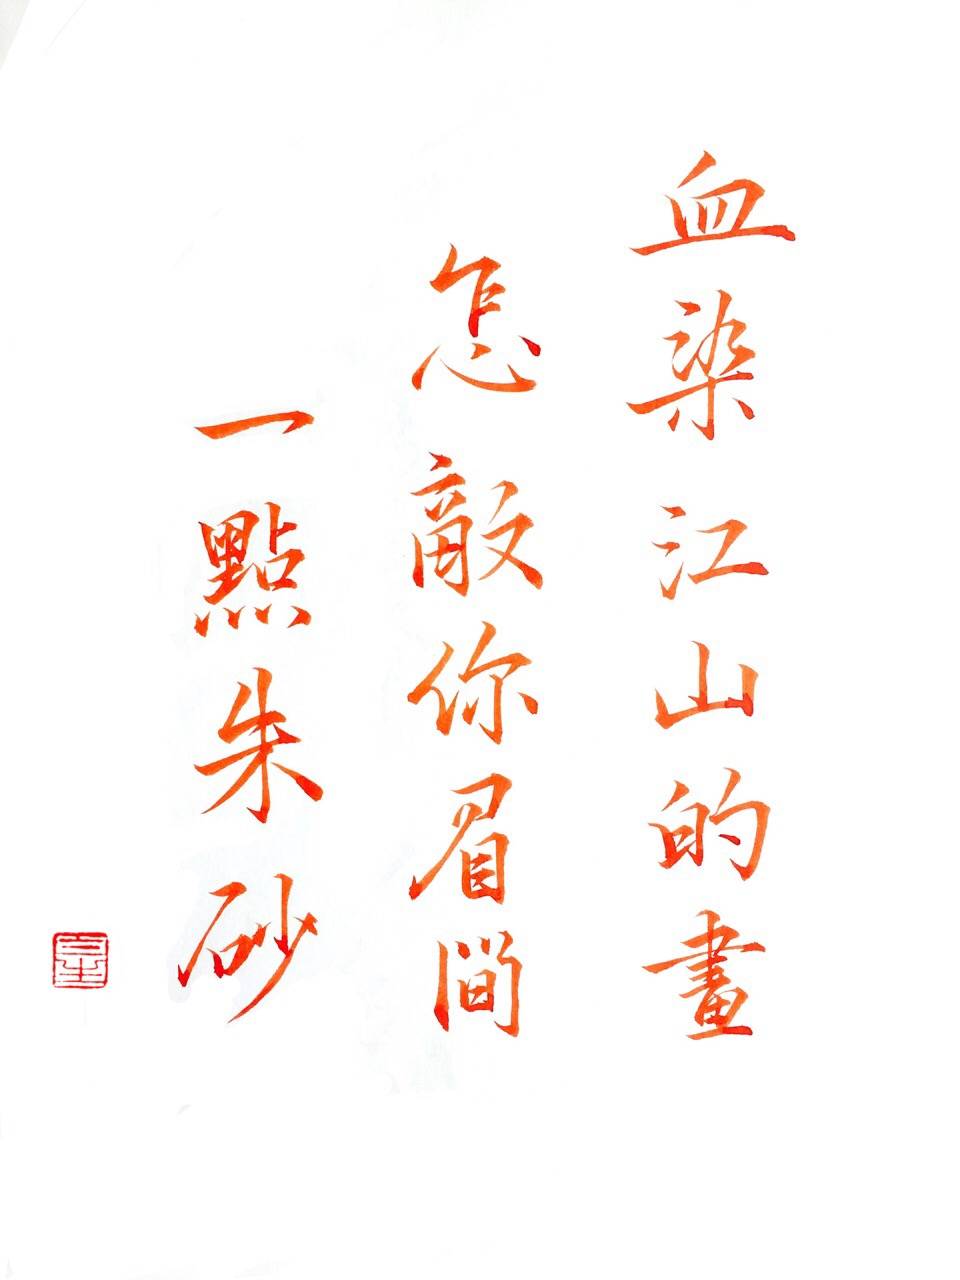 血染江山的畫
怎敵你眉間
一點朱砂